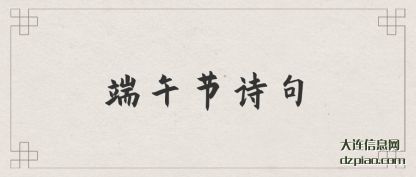 端午节诗句
大连信息网
dzpiao.com